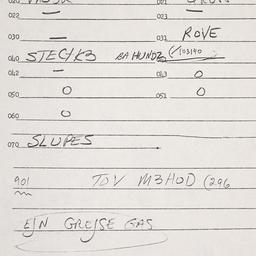 022 — 023
030 — 031 ROVE
040 STEC/K3 BA HUNDZ (103140
042 — 043 O
050 O 051 O
060 O
070 SLUPES
901 TOV M3HOD (296
EJN GREJSE GAS